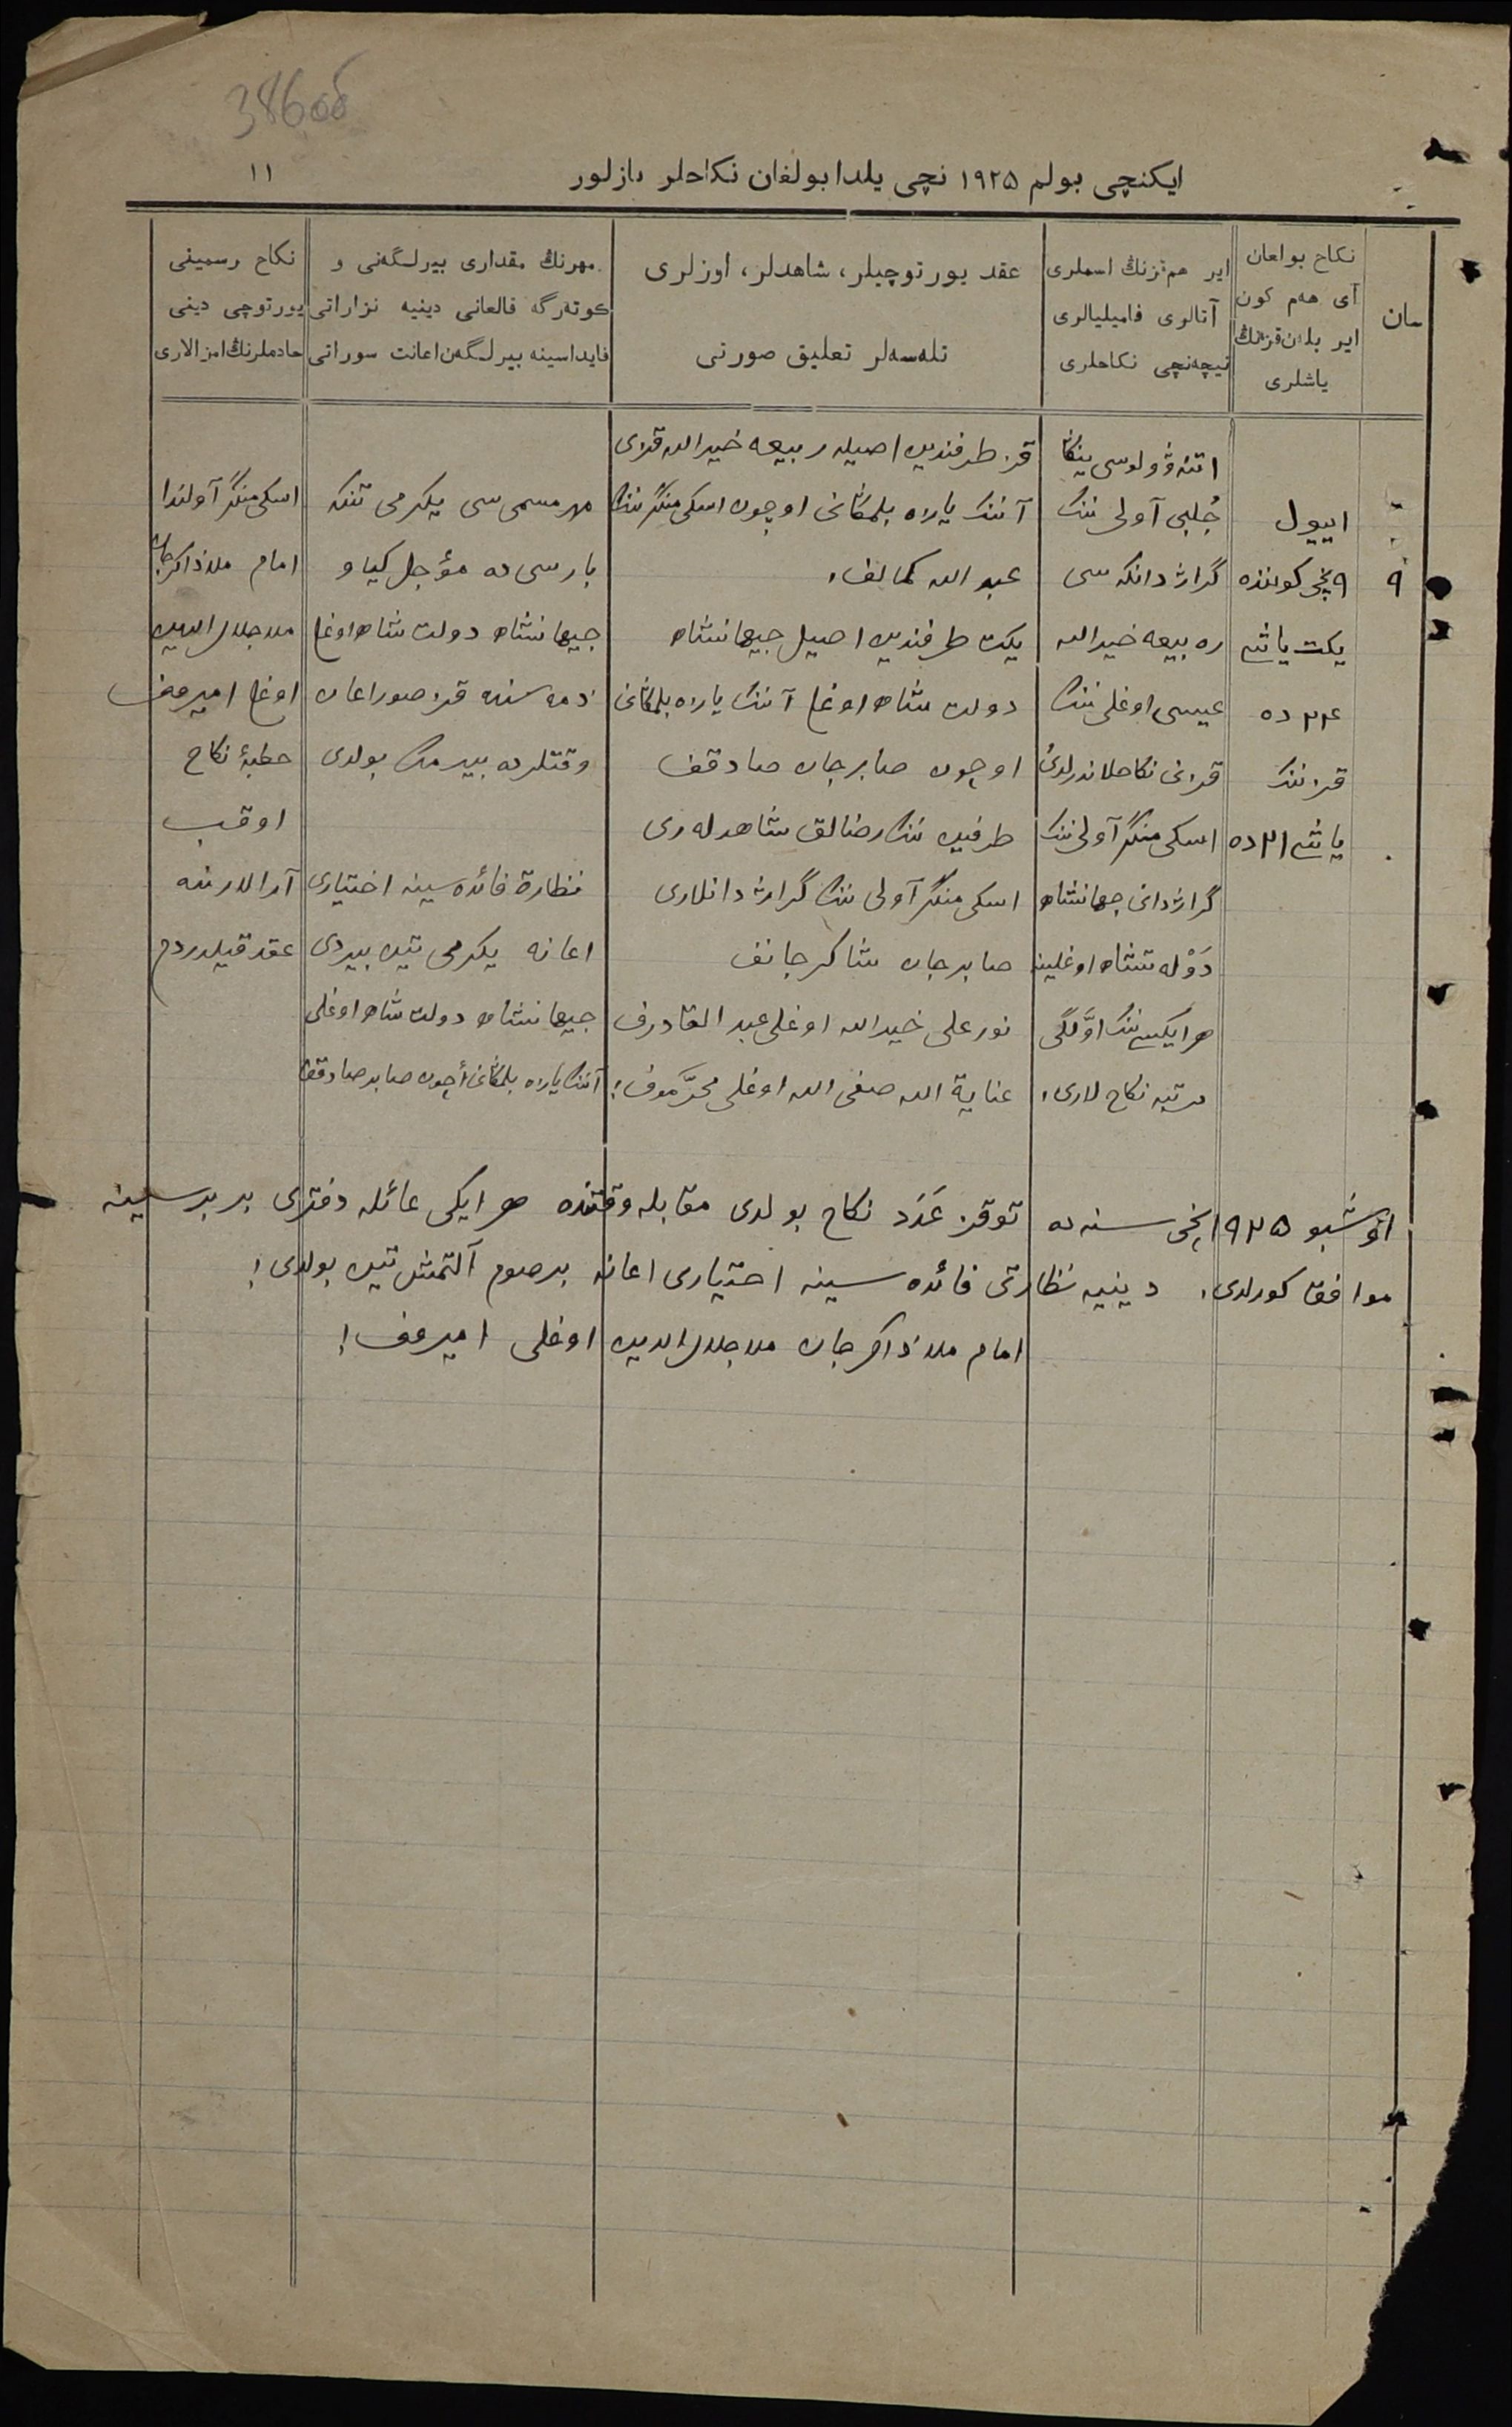 386об
ایکنچی بولم ۱۹۲۵ نچی یلدا بولغان نکاحلر یازلور
۱۱
سان
نکاح بولغان
آی هەم کون
ایر بلەن قزنڭ
یاشلری
ایر هم قزنڭ اسملری
آتالری فامیلیالری
نیچەنچی نکاحلری
عقد یورتوچیلر، شاهدلر، اوزلری
تلەسەلر تعلیق صورتی
مهرنڭ مقداری بیرلگەنی و
کوتەرگە قالغانی دینیه نزاراتی
فایداسینه بیرلگەن اعانت سوراتی
نکاح رسمینی
یورتوچی دینی
خادملرنڭ امزالاری
۹
اییول
۹ نچی کوننده
یکت یاشی
۲۴ ده
قزننڭ
یاشی ۲۱ ده
اتنه وولوسی ینگا
جُلبی آولی ننڭ
گراژدانکه سی
ره بیعه خیرالله
عیسی اوغلی ننڭ
قزنی نکاحلاندرلدی
اسکی منگر آولی ننڭ
گراژدانی جهانشاه
دَوْله تشاه اوغلینه
هر ایکیسی ننڭ اوّلگی
مرتبه نکاح لاری،
قز طرفندین اصیله ربیعه خیرالله قزی
آننڭ یازه بلمگانی اوچون اسکی منگر ننڭ
عبدالله کمالف،
یکت طرفندین اصیل جیهانشاه
دولت شاه اوغلی آننڭ یازه بلمگانی
اوچون صابرجان صادقف
طرفین ننڭ رضالق شاهدله ری
اسکی منگر آولی ننڭ گراژدانلاری
صابرجان شاکرجانف
نورعلی خیرالله اوغلی عبدالقادرف
عنایة الله صفی الله اوغلی محرّموف!
مهر مسمی سی یگرمی تنکه
بارسی ده مؤجل کیاو
جیهانشاه دولت شاه اوغلی
ذمه سنده قز صوراغان
وقتلرده بیرمک بولدی
نظارة فائده سینه اختیاری
اعانه یگرمی تین بیردی
جیهانشاه دولت شاه اوغلی
آننڭ یازه بلمگانی اُچون صابر صادقف
اسکی منگر آولندا
امام ملا ذاکرجان
ملا جلال الدین
اوغلی امیروف
خطبۀ نکاح
اوقب
آرالارنده
عقد قیلدردم
اوشبو ۱۹۲۵ نچی سنه ده توقز عَدَد نکاح بولدی مقابله وقتنده هر ایکی عائله دفتری بر برسینه
موافق کورلدی، دینیه نظارتی فائده سینه اختیاری اعانه بر صوم آلتمش تین بولدی!
امام ملا ذاکرجان ملا جلال الدین اوغلی امیروف!